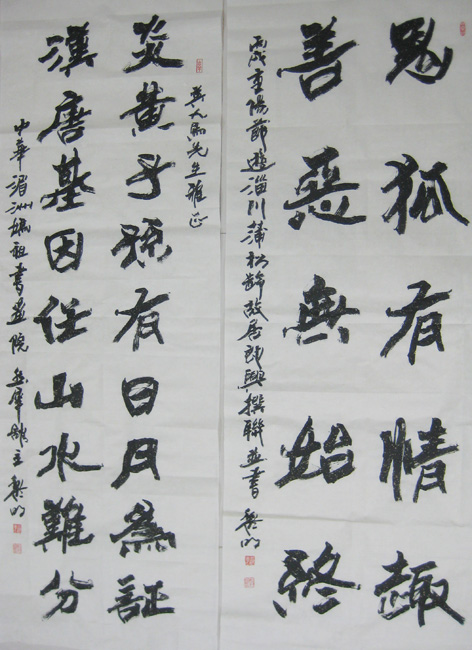 鬼狐有情趣
善惡無始終
丙戌重陽節遊淄川蒲松齡故居即興撰聯並書 黎明
先生雅正
炎黃子孫有日月為証
漢唐基因任山水難分
中華湄洲媽祖書畫院 主 黎明